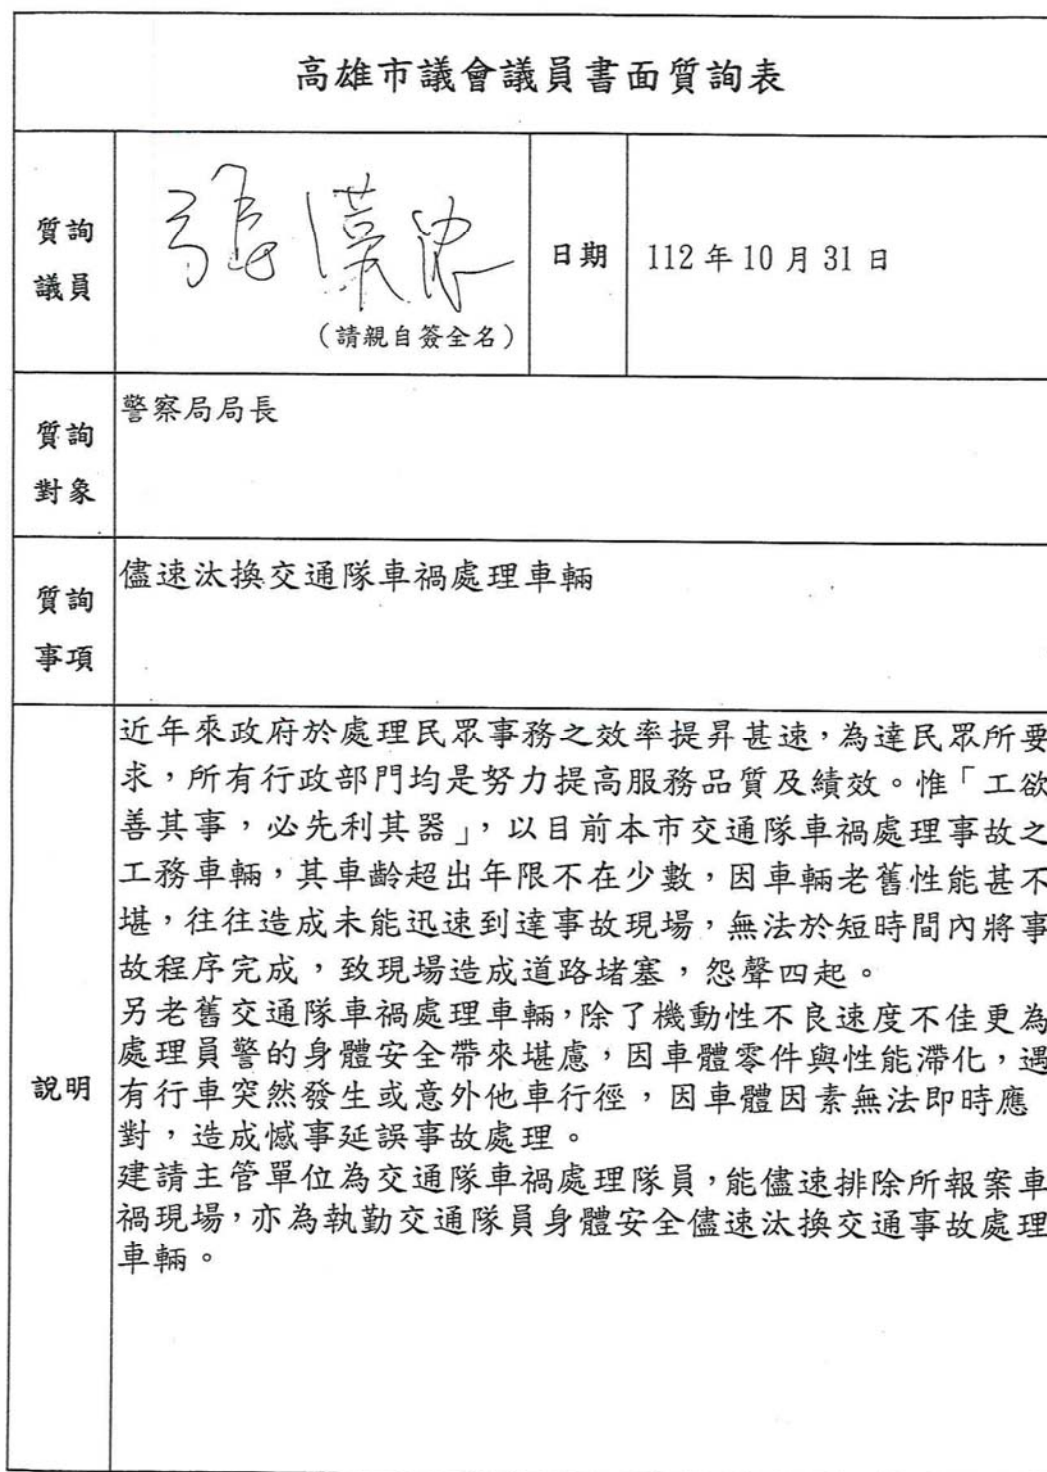 高雄市議會議員書面質詢表
質詢
議員
張漢忠
(請親自簽全名)
日期
112年10月31日
質詢
對象
警察局局長
質詢
事項
儘速汰換交通隊車禍處理車輛
說明
近年來政府於處理民眾事務之效率提昇甚速,為達民眾所要
求,所有行政部門均是努力提高服務品質及績效。惟「工欲
善其事,必先利其器」,以目前本市交通隊車禍處理事故之
工務車輛,其車齡超出年限不在少數,因車輛老舊性能甚不
堪,往往造成未能迅速到達事故現場,無法於短時間內將事
故程序完成,致現場造成道路堵塞,怨聲四起。
另老舊交通隊車禍處理車輛,除了機動性不良速度不佳更為
處理員警的身體安全帶來堪慮,因車體零件與性能滯化,遇
有行車突然發生或意外他車行徑,因車體因素無法即時應
對,造成憾事延誤事故處理。
建請主管單位為交通隊車禍處理隊員,能儘速排除所報案車
禍現場,亦為執勤交通隊員身體安全儘速汰換交通事故處理
車輛。